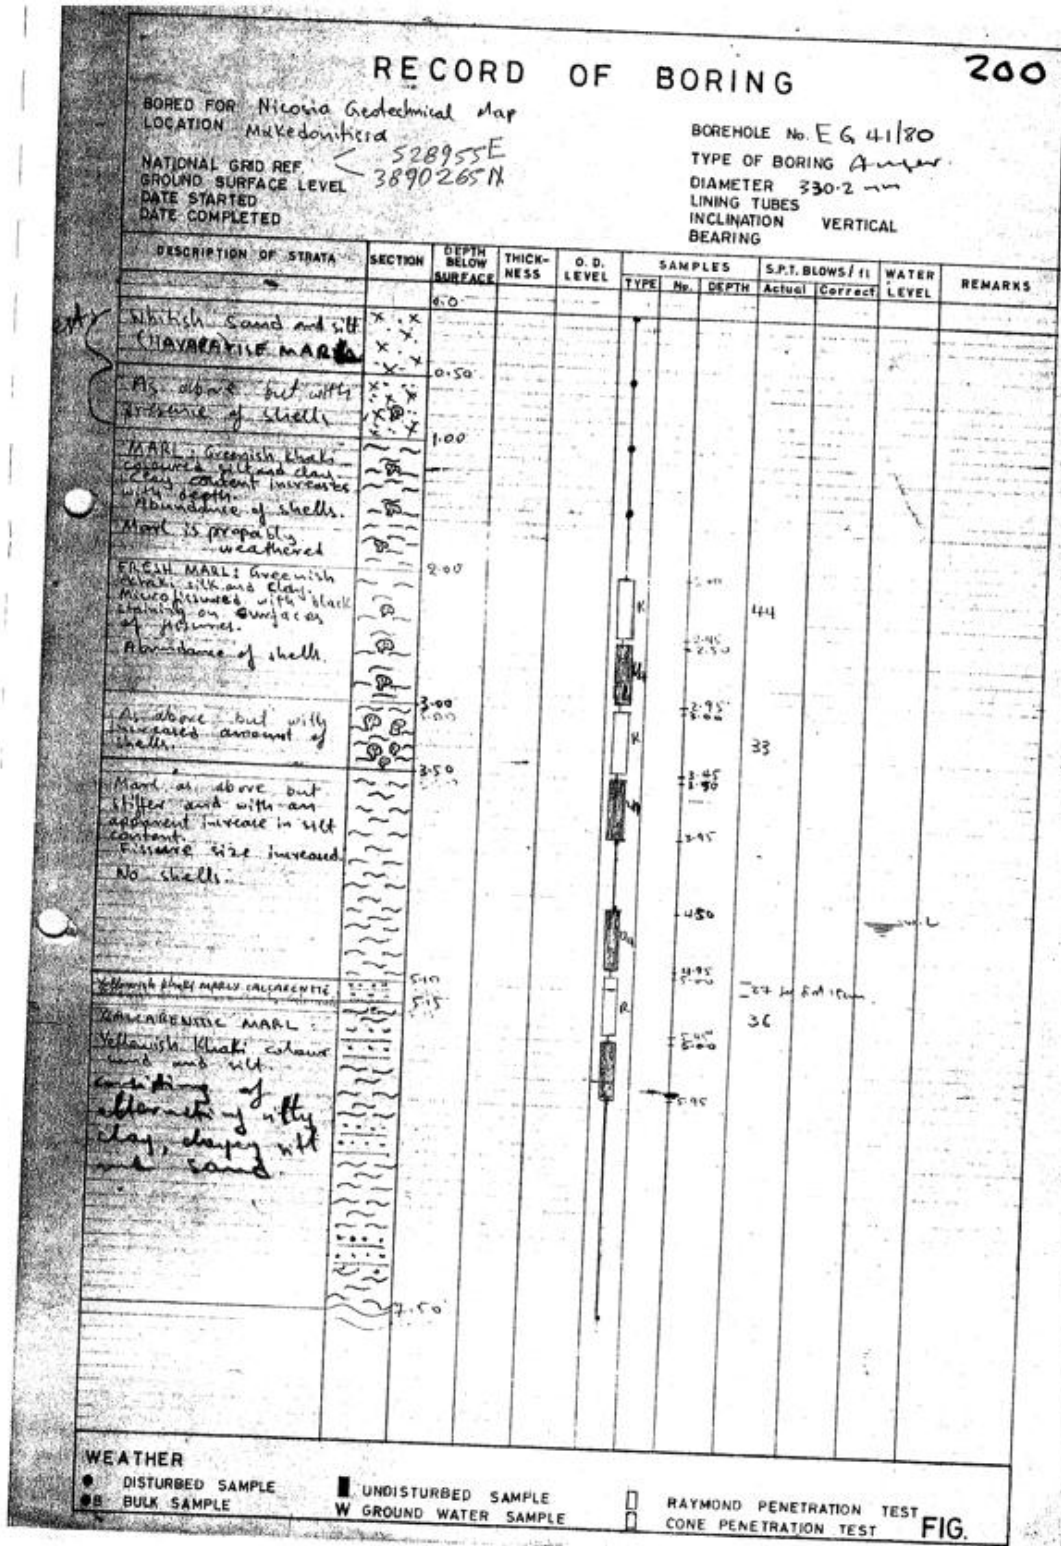 200
RECORD OF BORING
BORED FOR Nicosia Geotechnical Map
LOCATION Makedonitissa
NATIONAL GRID REF. 528955E
3890265N
GROUND SURFACE LEVEL
DATE STARTED
DATE COMPLETED
BOREHOLE No. EG 41/80
TYPE OF BORING Auger.
DIAMETER 330.2 mm
LINING TUBES
INCLINATION VERTICAL
BEARING
DESCRIPTION OF STRATA SECTION DEPTH BELOW SURFACE THICK-NESS O.D. LEVEL SAMPLES S.P.T. BLOWS/ft WATER LEVEL REMARKS
TYPE No. DEPTH Actual Correct
0.0
Whitish Sand and silt
0.50
As above but with
presence of shells
1.00
MARL: Greenish khaki
coloured silt and clay
Clay content increases
with depth.
Abundance of shells.
Marl is propably
weathered
2.00
FRESH MARL: Greenish
khaki silk and clay.
Microfissured with black
staining on surfaces
of fissures.
Abundance of shells.
K 44
2.45
2.50
2.95
3.00
3.00
As above but with
increased amount of
shells.
K 33
3.50
3.45
3.50
Marl as above but
stiffer and with an
apparent increase in silt
content.
Fissure size increased.
No shells.
3.95
4.50
W.L
4.95
5.00
5.10
Yellowish khaki MARLY CALCARENITE
5.15
R 36
CALCARENITIC MARL:
Yellowish khaki colour
sand and silt.
consisting of
alternating silty
clay, clayey silt
and sand.
5.95
7.50
WEATHER
DISTURBED SAMPLE
B BULK SAMPLE
UNDISTURBED SAMPLE
W GROUND WATER SAMPLE
RAYMOND PENETRATION TEST
CONE PENETRATION TEST
FIG.